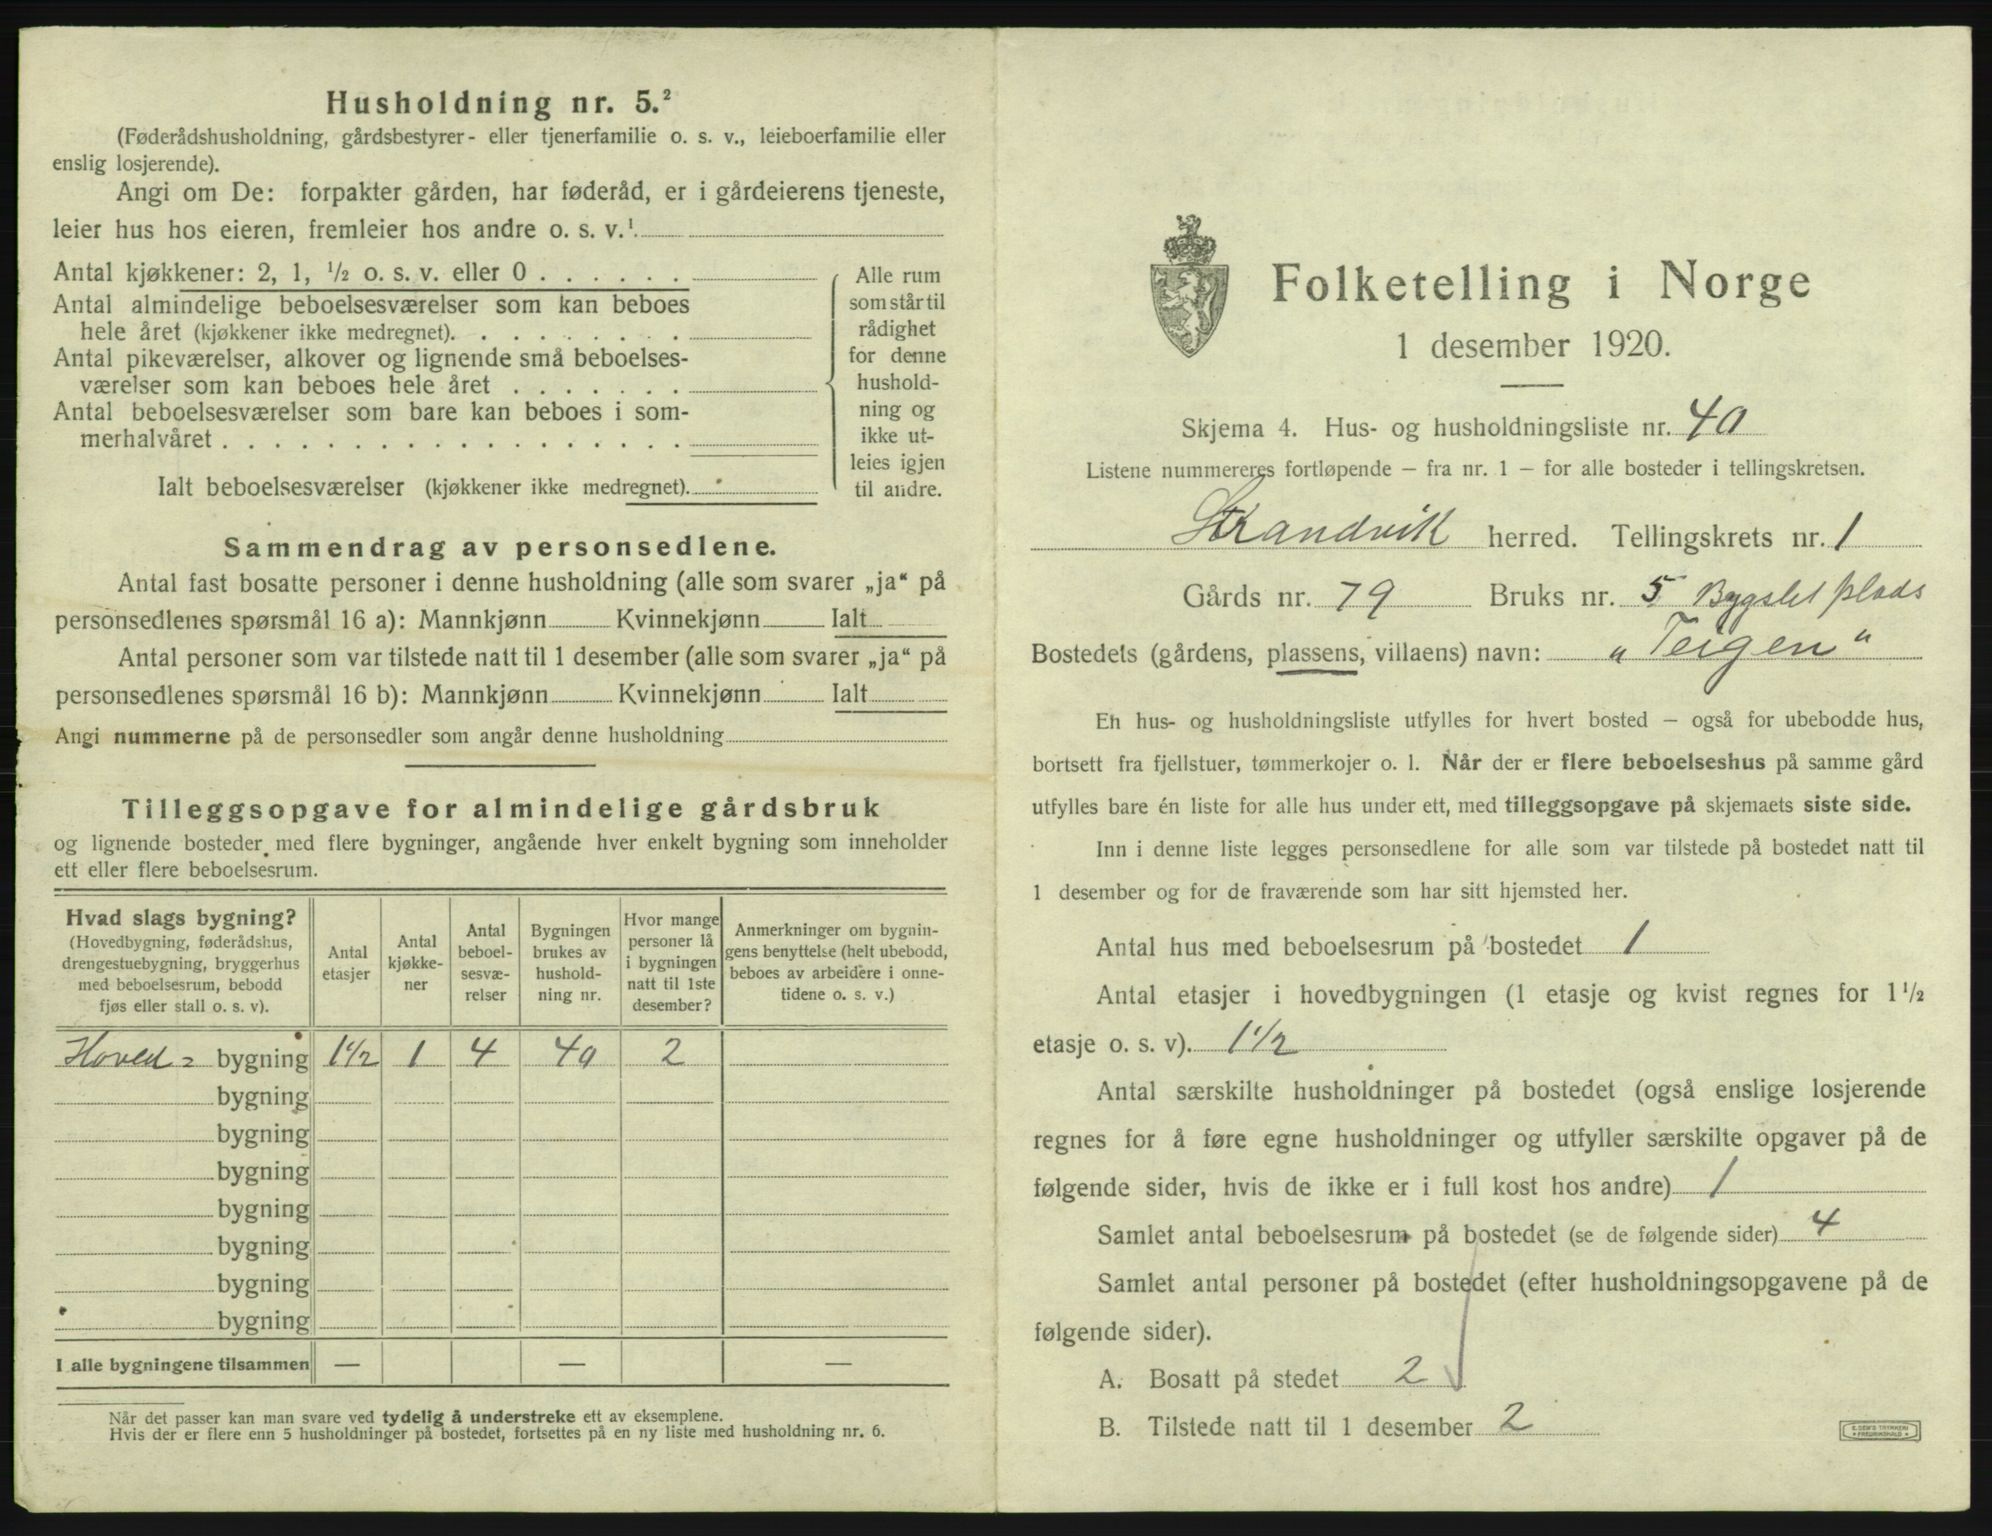 Husholdning nr. 5.²
(Føderådshusholdning, gårdsbestyrer- eller tjenerfamilie o. s. v., leieboerfamilie eller
enslig losjerende).
Angi om De: forpakter gården, har føderåd, er i gårdeierens tjeneste,
leier hus hos eieren, fremleier hos andre o. s. v.¹
Antal kjøkkener: 2, 1, ½ o. s. v. eller 0 . . . . . .
Antal almindelige beboelsesværelser som kan beboes
hele året (kjøkkener ikke medregnet). . . . . . . . .
Antal pikeværelser, alkover og lignende små beboelses-
værelser som kan beboes hele året . . . . . . .
Antal beboelsesværelser som bare kan beboes i som-
merhalvåret . . . . . . . . . . . . . . . . . .
Ialt beboelsesværelser (kjøkkener ikke medregnet).
Alle rum
som står til
rådighet
for denne
hushold-
ning og
ikke ut-
leies igjen
til andre.
Sammendrag av personsedlene.
Antal fast bosatte personer i denne husholdning (alle som svarer „ja“ på
personsedlenes spørsmål 16 a): Mannkjønn Kvinnekjønn Ialt
Antal personer som var tilstede natt til 1 desember (alle som svarer „ja“ på
personsedlenes spørsmål 16 b): Mannkjønn Kvinnekjønn Ialt
Angi nummerne på de personsedler som angår denne husholdning
Tilleggsopgave for almindelige gårdsbruk
og lignende bosteder med flere bygninger, angående hver enkelt bygning som inneholder
ett eller flere beboelsesrum.
Hvad slags bygning?
(Hovedbygning, føderådshus,
drengestuebygning, bryggerhus
med beboelsesrum, bebodd
fjøs eller stall o. s. v).
Antal
etasjer
Antal
kjøkke-
ner
Antal
beboel-
sesvæ-
relser
Bygningen
brukes av
hushold-
ning nr.
Hvor mange
personer lå
i bygningen
natt til 1ste
desember?
Anmerkninger om bygnin-
gens benyttelse (helt ubebodd,
beboes av arbeidere i onne-
tidene o. s. v.)
Hoved= bygning 1½ 1 4 40 2
bygning
bygning
bygning
bygning
bygning
bygning
bygning
I alle bygningene tilsammen — — —
Når det passer kan man svare ved tydelig å understreke ett av eksemplene.
Hvis der er flere enn 5 husholdninger på bostedet, fortsettes på en ny liste med husholdning nr. 6.
Folketelling i Norge
1 desember 1920.
Skjema 4. Hus- og husholdningsliste nr. 40
Listene nummereres fortløpende — fra nr. 1 — for alle bosteder i tellingskretsen.
Strandvik herred. Tellingskrets nr. 1
Gårds nr. 79 Bruks nr. 5 Bygslet plads
Bostedets (gårdens, plassens, villaens) navn: „Teigen“
En hus- og husholdningsliste utfylles for hvert bosted — også for ubebodde hus,
bortsett fra fjellstuer, tømmerkojer o. l. Når der er flere beboelseshus på samme gård
utfylles bare én liste for alle hus under ett, med tilleggsopgave på skjemaets siste side.
Inn i denne liste legges personsedlene for alle som var tilstede på bostedet natt til
1 desember og for de fraværende som har sitt hjemsted her.
Antal hus med beboelsesrum på bostedet 1
Antal etasjer i hovedbygningen (1 etasje og kvist regnes for 1½
etasje o. s. v). 1½
Antal særskilte husholdninger på bostedet (også enslige losjerende
regnes for å føre egne husholdninger og utfyller særskilte opgaver på de
følgende sider, hvis de ikke er i full kost hos andre) 1
Samlet antal beboelsesrum på bostedet (se de følgende sider) 4
Samlet antal personer på bostedet (efter husholdningsopgavene på de
følgende sider).
A. Bosatt på stedet 2
B. Tilstede natt til 1 desember 2